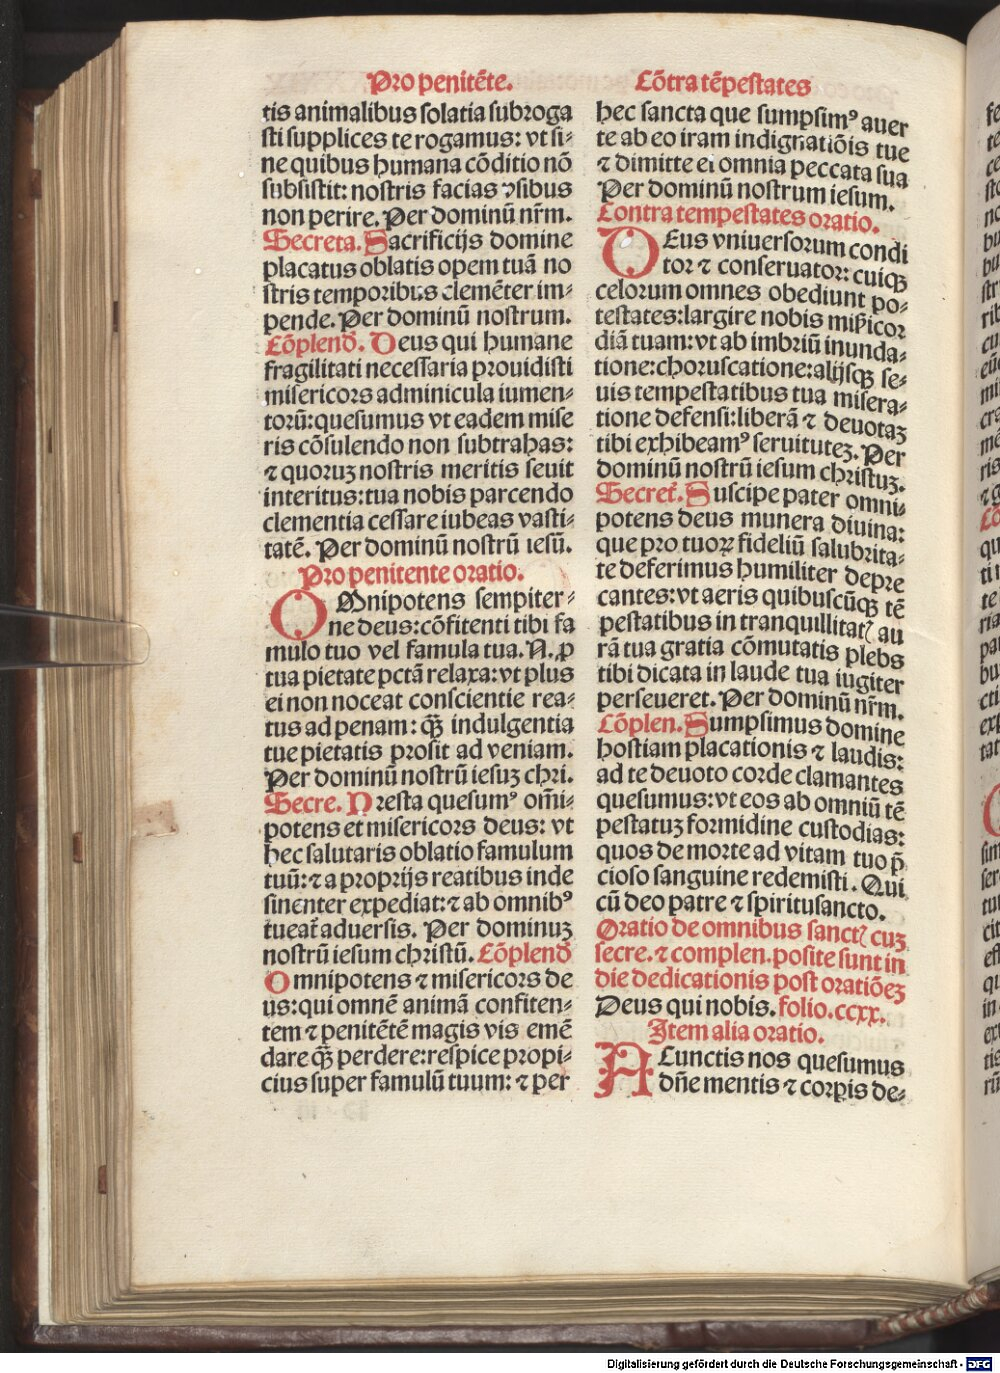 Pro penitēte.
tis animalibus solatia subroga
sti supplices te rogamus: vt si-
ne quibus humana cōditio nō
subsistit: nostris facias vsibus
non perire. Per dominū nr̄m.
Secreta. Sacrificijs domine
placatus oblatis opem tuā no
stris temporibus clemēter im-
pende. Per dominū nostrum.
Cōplend. Deus qui humane
fragilitati necessaria prouidisti
misericors adminicula iumen-
torū: quesumus vt eadem mise
ris cōsulendo non subtrahas:
⁊ quoruꝫ nostris meritis seuit
interitus: tua nobis parcendo
clementia cessare iubeas vasti-
tatē. Per dominū nostrū iesū.
Pro penitente oratio.
OMnipotens sempiter-
ne deus: cōfitenti tibi fa
mulo tuo vel famula tua. N. ꝓ
tua pietate pctā relaxa: vt plus
ei non noceat conscientie rea-
tus ad penam: qꝫ̄ indulgentia
tue pietatis prosit ad veniam.
Per dominū nostrū iesuꝫ chri.
Secre. Presta quesumꝰ om̄i-
potens et misericors deus: vt
hec salutaris oblatio famulum
tuū: ⁊ a proprijs reatibus inde
sinenter expediat: ⁊ ab omnibꝰ
tueat᷑ aduersis. Per dominuꝫ
nostrū iesum christū. Cōplend
Omnipotens ⁊ misericors de
us: qui omnē animā confiten-
tem ⁊ penitētē magis vis emē
dare qꝫ̄ perdere: respice propi-
cius super famulū tuum: ⁊ per
Cōtra tēpestates
hec sancta que sumpsimꝰ auer
te ab eo iram indignatiōis tue
⁊ dimitte ei omnia peccata sua
Per dominū nostrum iesum.
Contra tempestates oratio.
DEus vniuersorum condi
tor ⁊ conseruator: cuiqꝫ
celorum omnes obediunt po-
testates: largire nobis mi̅s̅icor
diā tuam: vt ab imbriū inunda-
tione: choruscatione: alijsqꝫ se-
uis tempestatibus tua misera-
tione defensi: liberā ⁊ deuotaꝫ
tibi exhibeamꝰ seruituteꝫ. Per
dominū nostrū iesum christuꝫ.
Secret᷑. Suscipe pater omni-
potens deus munera diuina:
que pro tuoꝝ fideliū salubrita-
te deferimus humiliter depre
cantes: vt aeris quibuscūqꝫ tē
pestatibus in tranquillitatꝭ au
rā tua gratia cōmutatis plebs
tibi dicata in laude tua iugiter
perseueret. Per dominū nr̄m.
Cōplen. Sumpsimus domine
hostiam placationis ⁊ laudis:
ad te deuoto corde clamantes
quesumus: vt eos ab omniū tē
pestatuꝫ formidine custodias:
quos de morte ad vitam tuo p̄
cioso sanguine redemisti. Qui
cū deo patre ⁊ spiritusancto.
Oratio de omnibus sanctꝭ cuꝫ
secre. ⁊ complen. posite sunt in
die dedicationis post oratiōeꝫ
Deus qui nobis. folio. ccxx.
Item alia oratio.
A Cunctis nos quesumus
dn̄e mentis ⁊ corꝑis de-
Digitalisierung gefördert durch die Deutsche Forschungsgemeinschaft - DFG